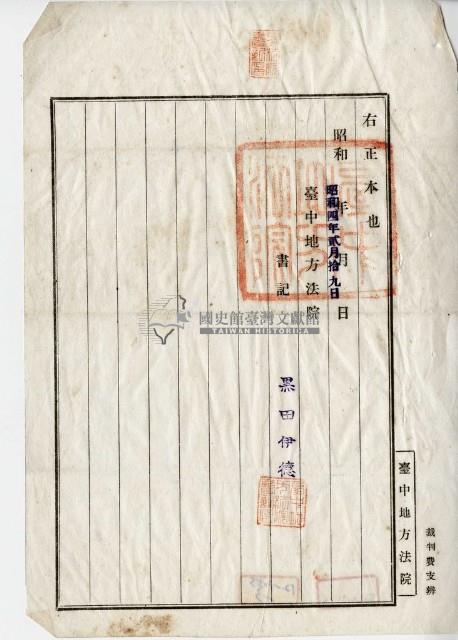 右正本也
昭和 年 月 日
昭和四年貳月拾九日
臺中地方法院
書記
黒田伊德
臺中地方法院
裁判費支辨
國史館臺灣文獻館
TAIWAN HISTORICA